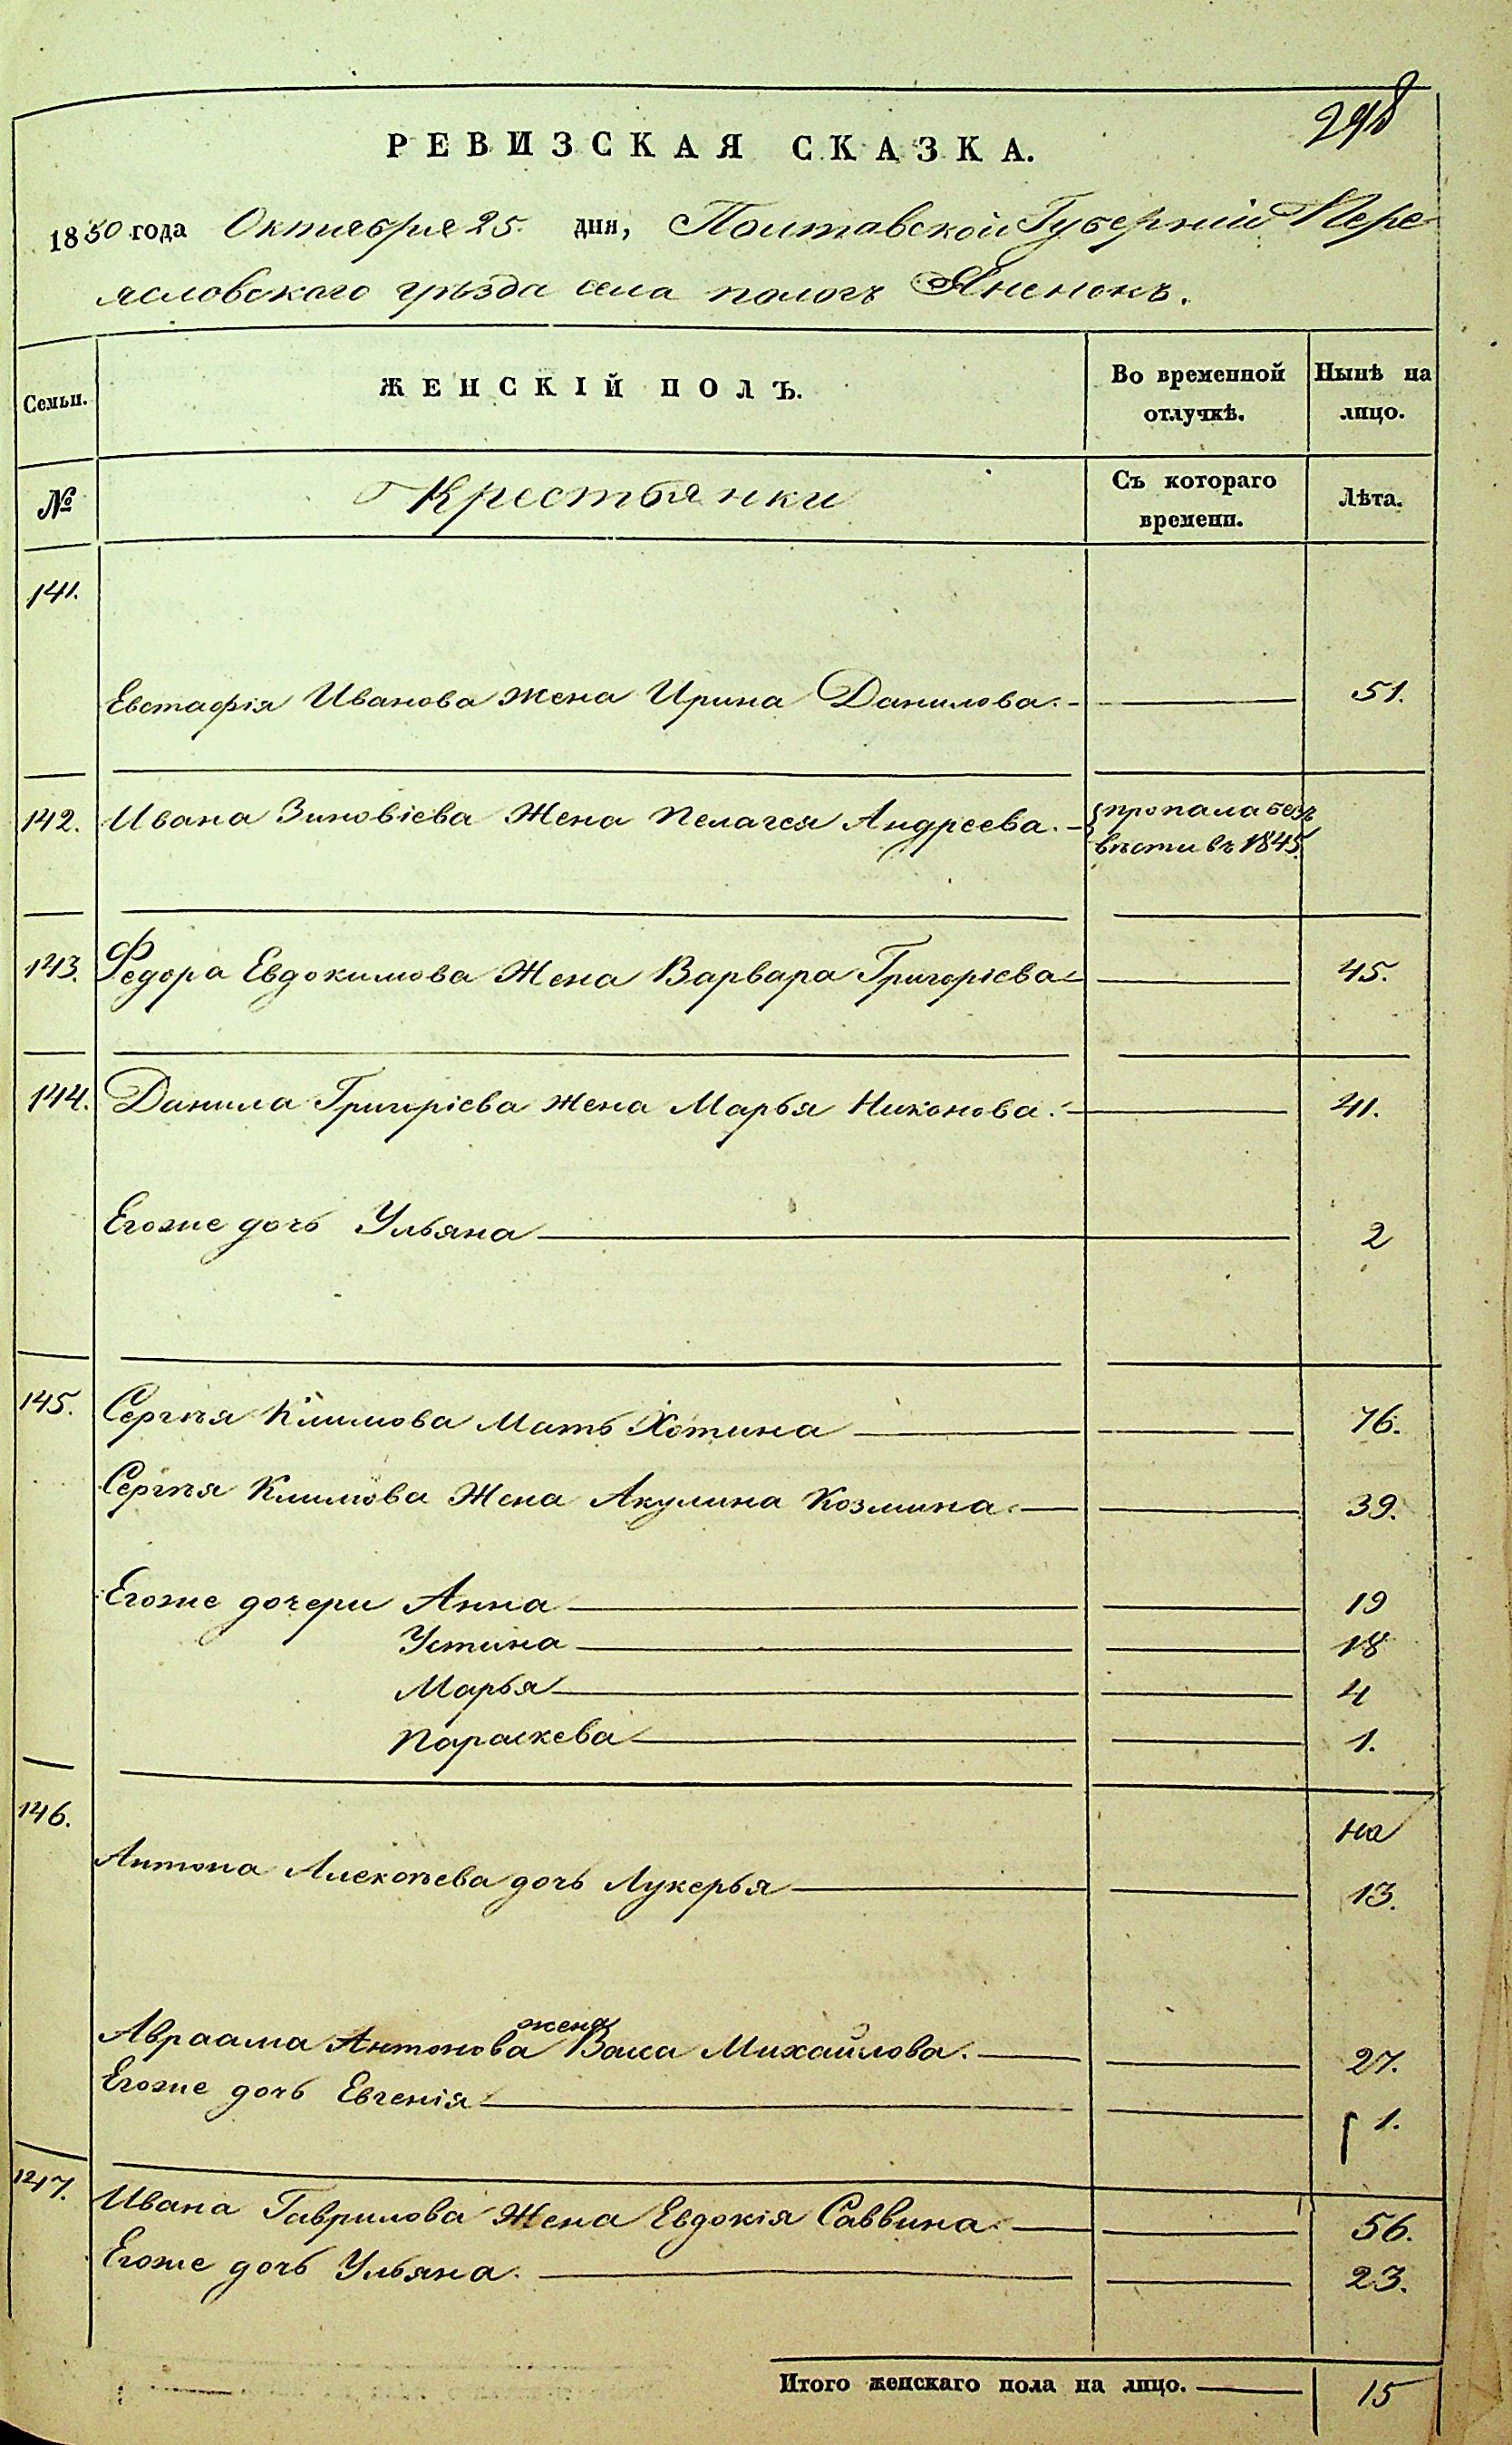 298
РЕВИЗСКАЯ СКАЗКА.
1850 года Октября 25. дня, Полтавской Губерніи Пере-
ясловского уѣзда села пологъ Яненокъ.
Семьи. ЖЕНСКІЙ ПОЛЪ. Во временной отлучкѣ. Нынѣ на лицо.
№ Крестьянки Съ котораго времени. Лѣта.
141.
Евстафія Иванова жена Ирина Данилова. 51.
142. Ивана Зиновіева Жена Пелагея Андреева. пропала безъ
вѣсти въ 1845.
143. Федора Евдокимова Жена Варвара Григоріева 45.
144. Данила Григоріева жена Марья Никонова. 41.
Егоже дочь Ульяна 2
145. Сергѣя Климова Мать Хотина 76.
Сергѣя Климова Жена Акулина Козмина. 39.
Егоже дочери Анна 19
Устина 18
Марья 4
Параскева 1.
146. на
Антона Алексѣева дочь Лукерья 13.
жена
Авраама Антонова Васса Михайлова. 27.
Егоже дочь Евгенія 1.
147. Ивана Гаврилова Жена Евдокія Саввина. 56.
Егоже дочь Ульяна. 23.
Итого женскаго пола на лицо. 15